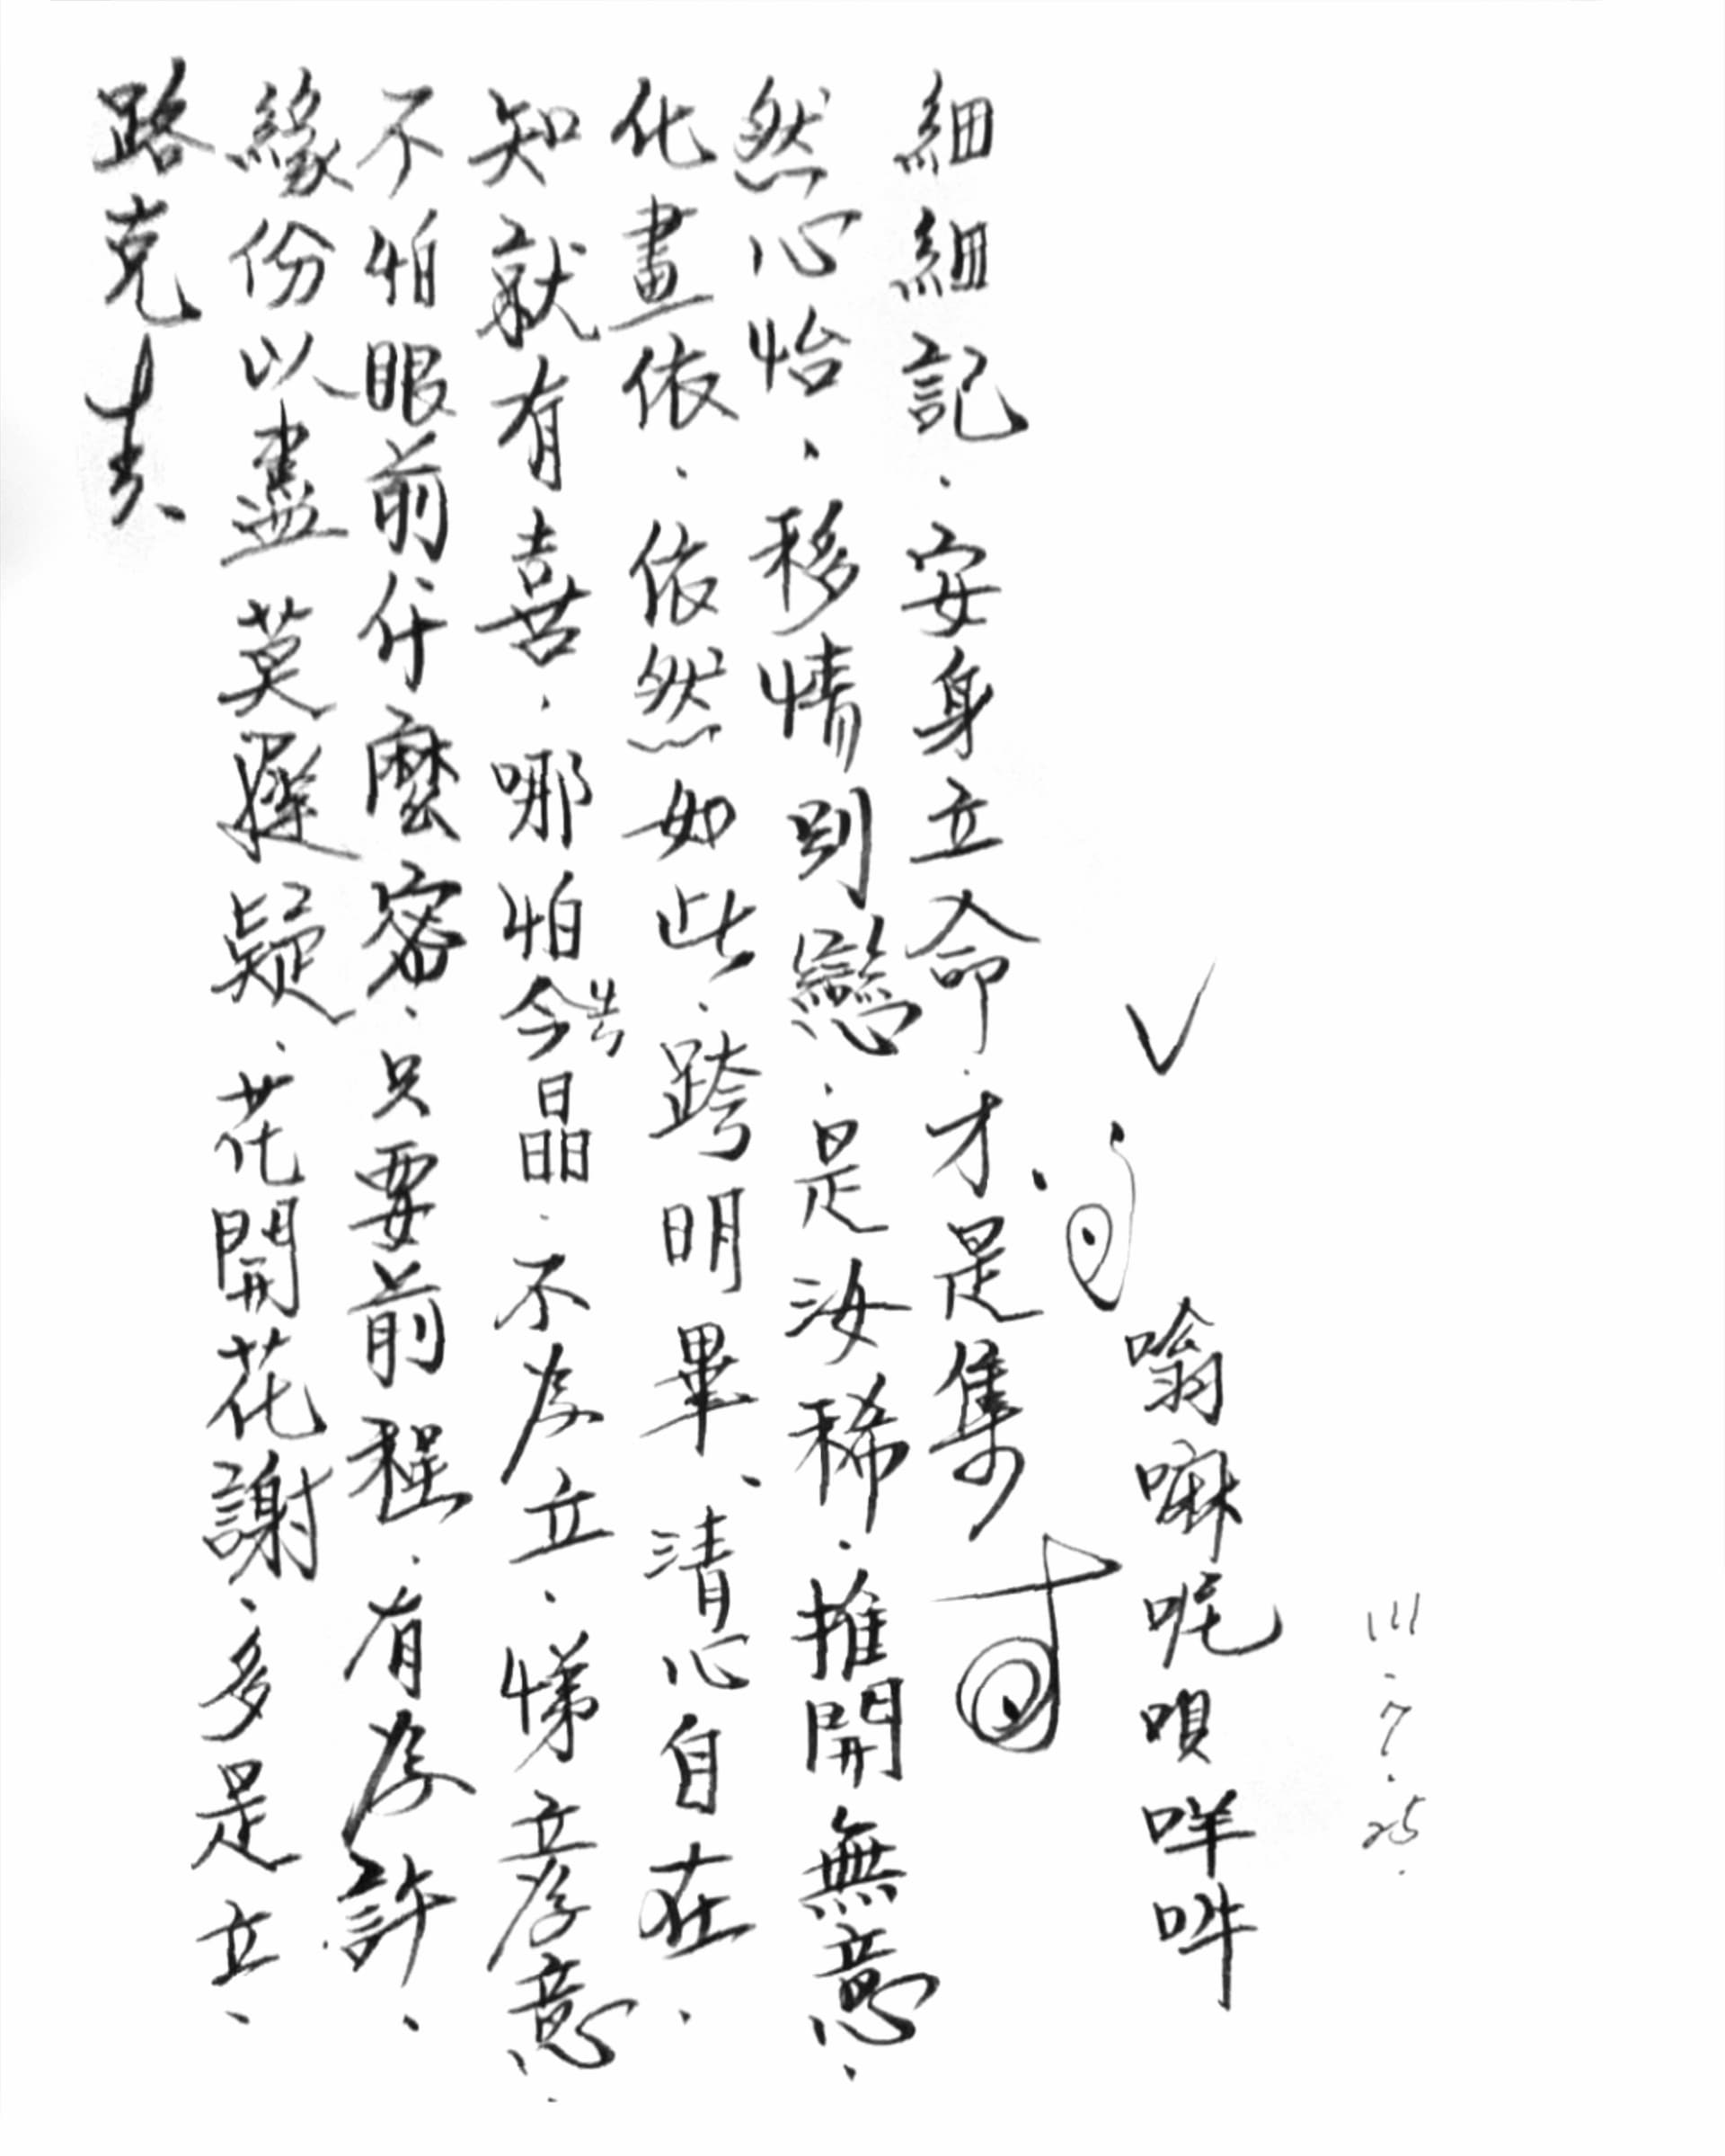 111.7.25.
嗡嘛呢唄咩吽
細細記.安身立命.才是集
然心怡.移情則戀.是汝稀.推開無意.
化畫依.依然如此.跨明畢、清心自在.
知就有喜.哪怕今晶.不為立.悌立為意.
不怕眼前什麼密.只要前程.有為許.
緣份以盡莫遲疑.花開花謝.多是立.
路克